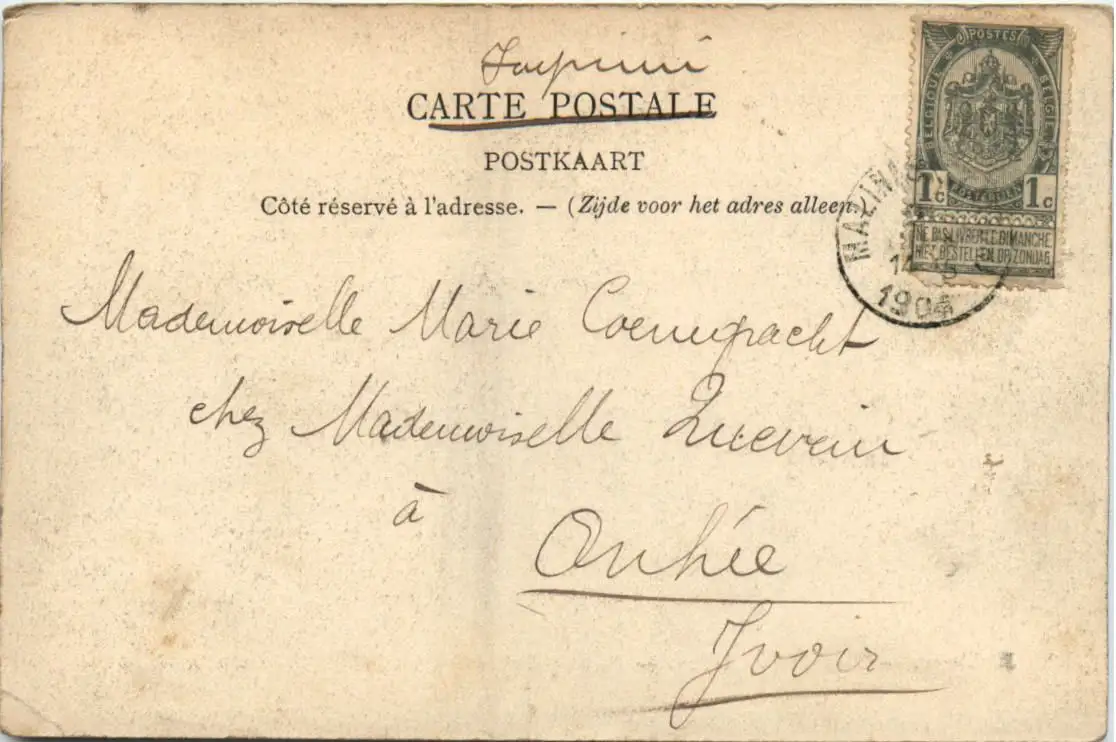 Imprimé
CARTE POSTALE
POSTKAART
Côté réservé à l'adresse. — (Zijde voor het adres alleen.
POSTES
BELGIQUE BELGIE
POSTERIJEN
1c 1c
NE PAS LIVRER LE DIMANCHE
NIET BESTELLEN OP ZONDAG
MALINES
1904
Mademoiselle Marie
chez Mademoiselle
à
Onhée
Yvoir